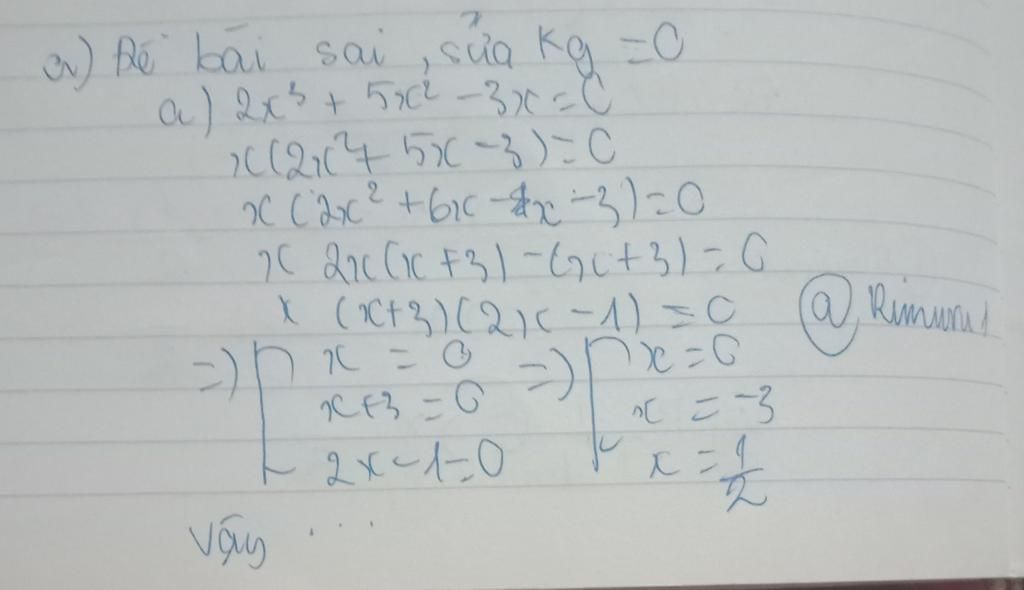 a) Đề bài sai, sửa Kq = 0
a) 2x³ + 5x² - 3x = 0
x(2x² + 5x - 3) = 0
x(2x² + 6x - 1x - 3) = 0
x 2x(x+3) - (x+3) = 0
x (x+3)(2x - 1) = 0 @ Rimuru
=> [ x = 0 => [ x = 0
x+3 = 0 x = -3
2x - 1 = 0 x = 1/2
Vậy ...